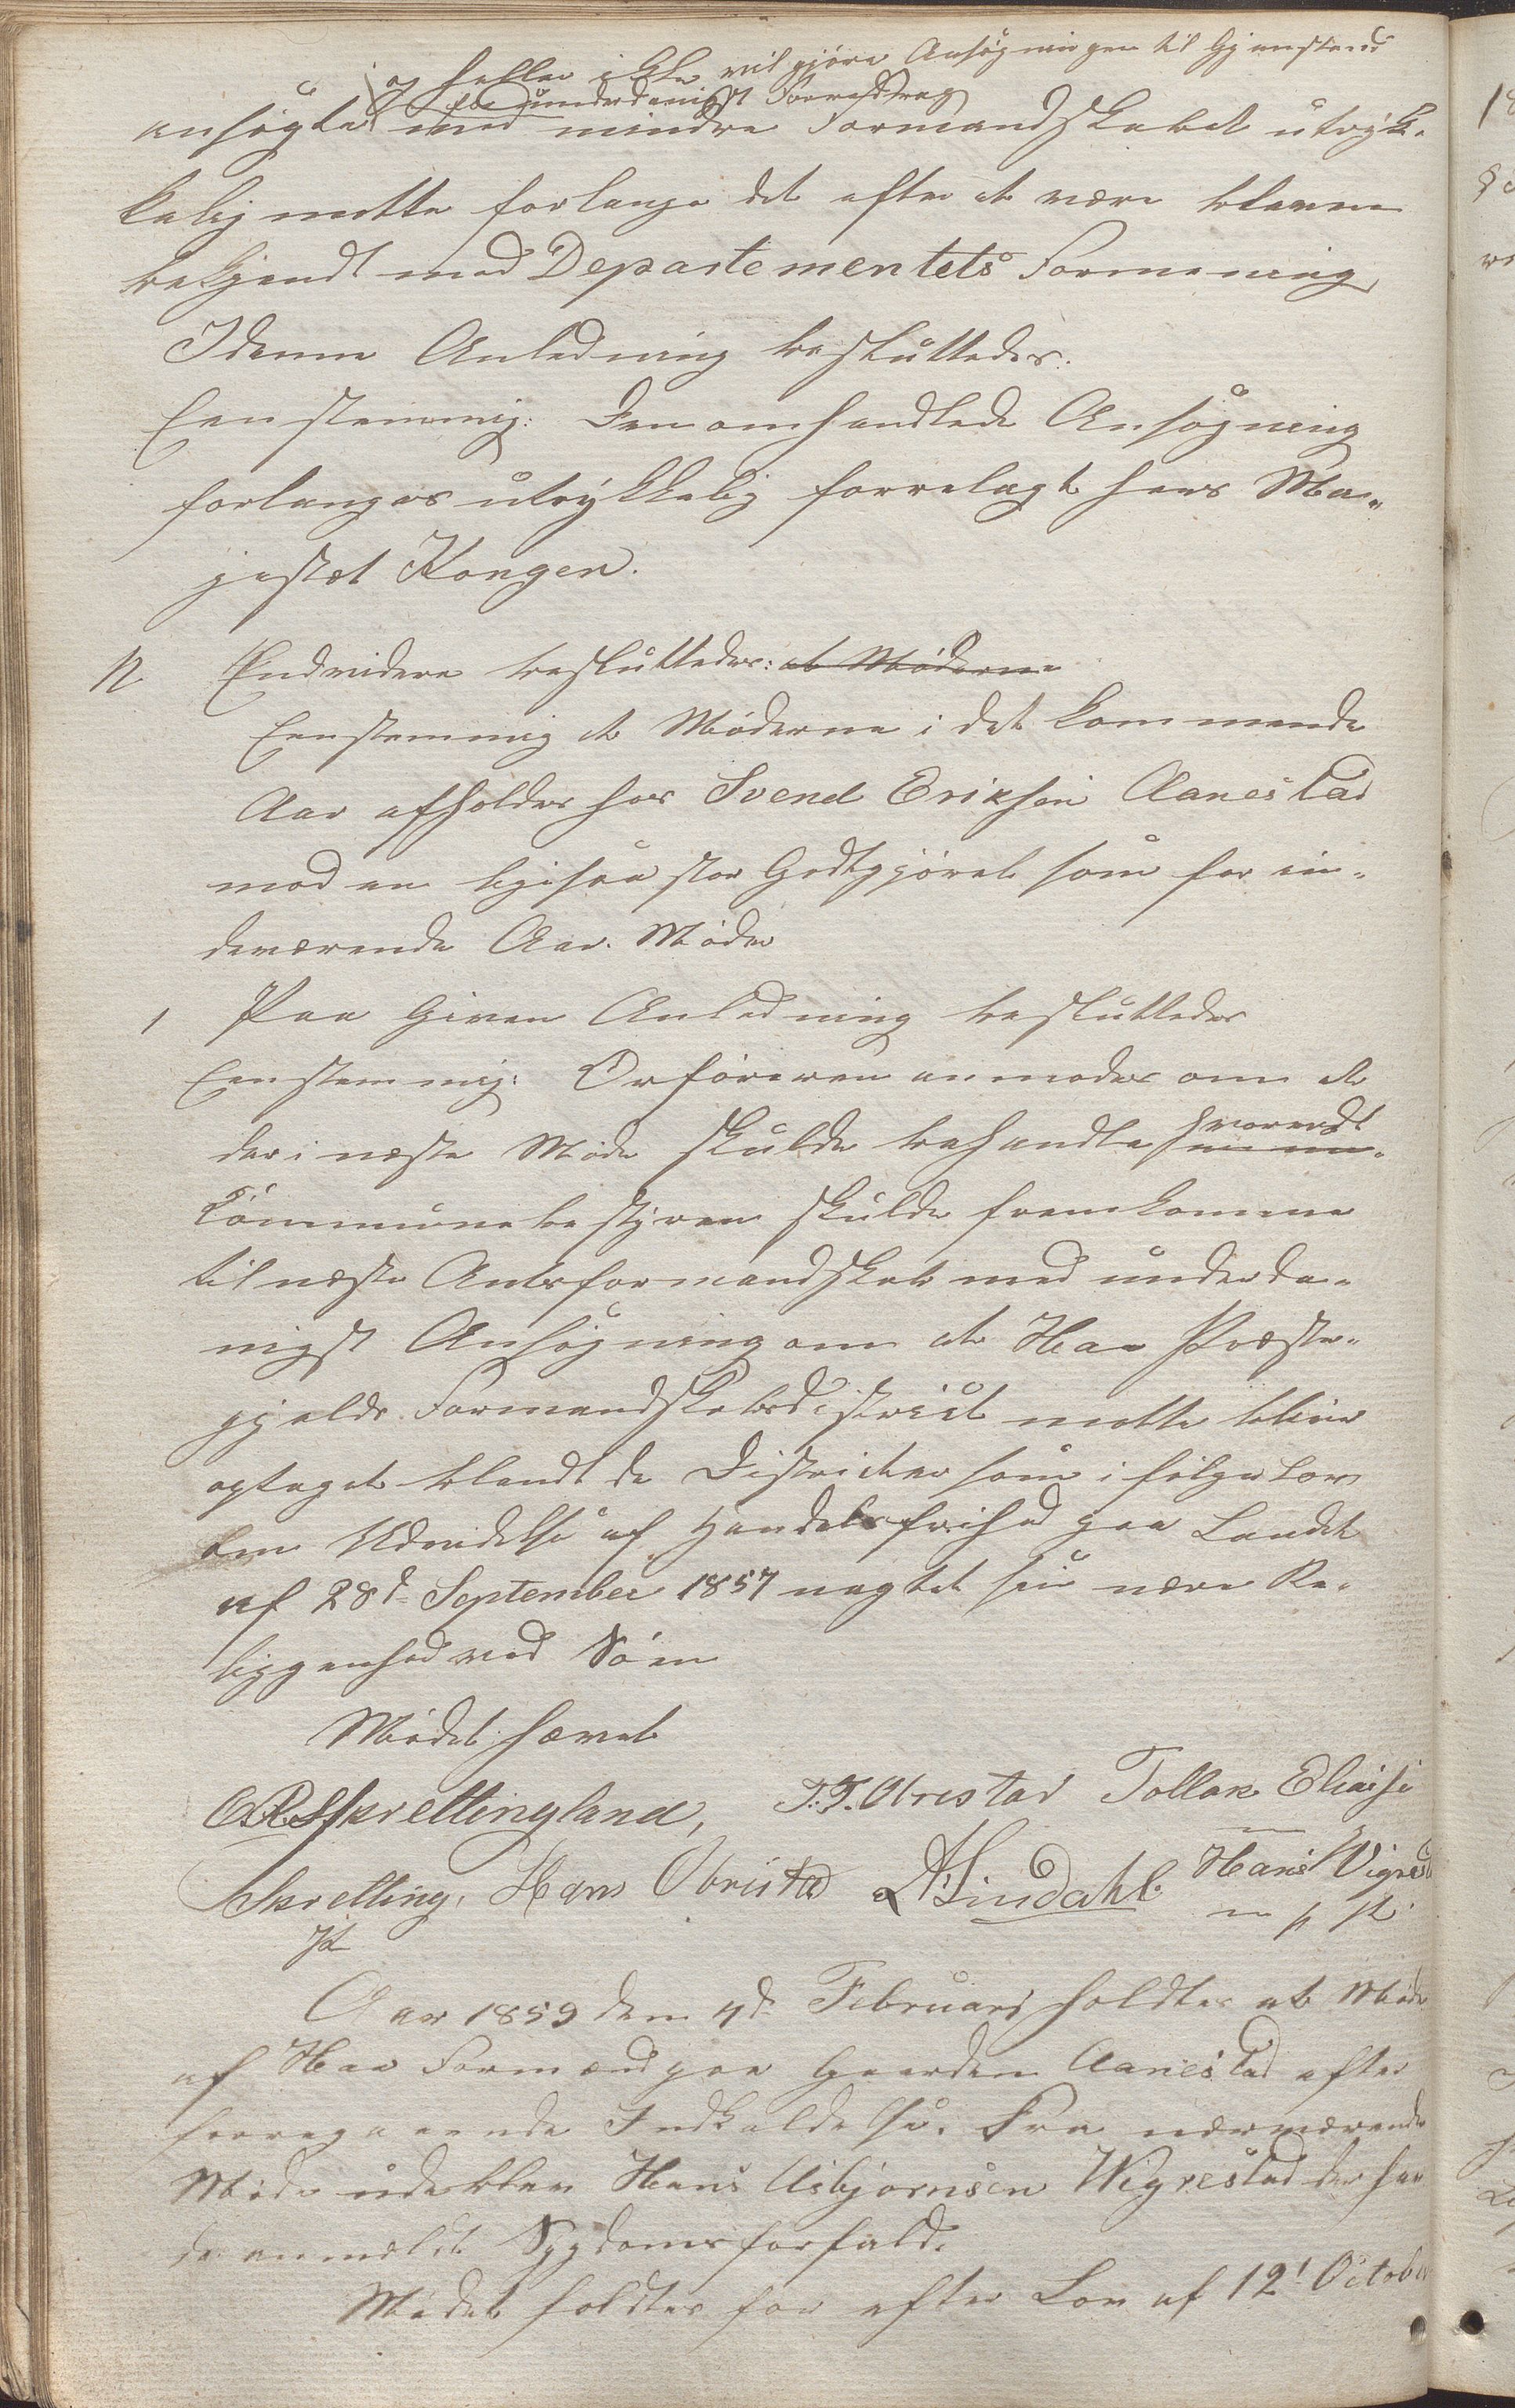 og heller ikke vil gjøre Ansøgningen til Gjenstand
for underdanigst Foredrag
ansøgte med mindre Formandskabet utryk-
kelig motte forlange det efter at være bleven
bekjendt med Departementets Formening
I denne Anledning besluttedes.
Eenstemmig: Den omhandlede Ansøgning
forlanges utrykkelig forrelagt hans Ma-
jestæt Kongen.
N Endvidere besluttedes: at Møderne
Eenstemmig at Møderne i det kommende
Aar afholdes hos Svend Eriksen Aanestad
mod en ligesaa stor Godtgjørel som for in-
deværende Aar. Møder
1 Paa Given Anledning besluttedes
Eenstemmig: Orføreren anmodes om at
der i næste Møde skulde behandles hvorvidt
Communebestyren skulde fremkomme
til næste Amtsformandskab med underda-
nigst Ansøgning om at Haa Præste-
gjelds Formandskabsdistrict motte blive
optaget blandt de Districter som ifølge Lov
om Udvidelse af Handelsfrihed paa Landet
af 28d September 1857 nægtet sin nære Be-
liggenhed ved Søen
Mødet hævet
O R Skrettingland, T. T. Obrestad Tollak Eliase
Skretting, Hans Obrista A Lindahl Hans Vigres
m p P
Aar 1859 den 4d Februari holdtes et Møde
af Haa Formænd paa Gaarden Aanestad efter
forregaaende Indkaldelse. Fra nærværende
Møde udeblev Hans Asbjørnsen Wigrestad der hav
de anmældt Sygdomsforfald.
Mødet holdtes for efter Lov af 12t October